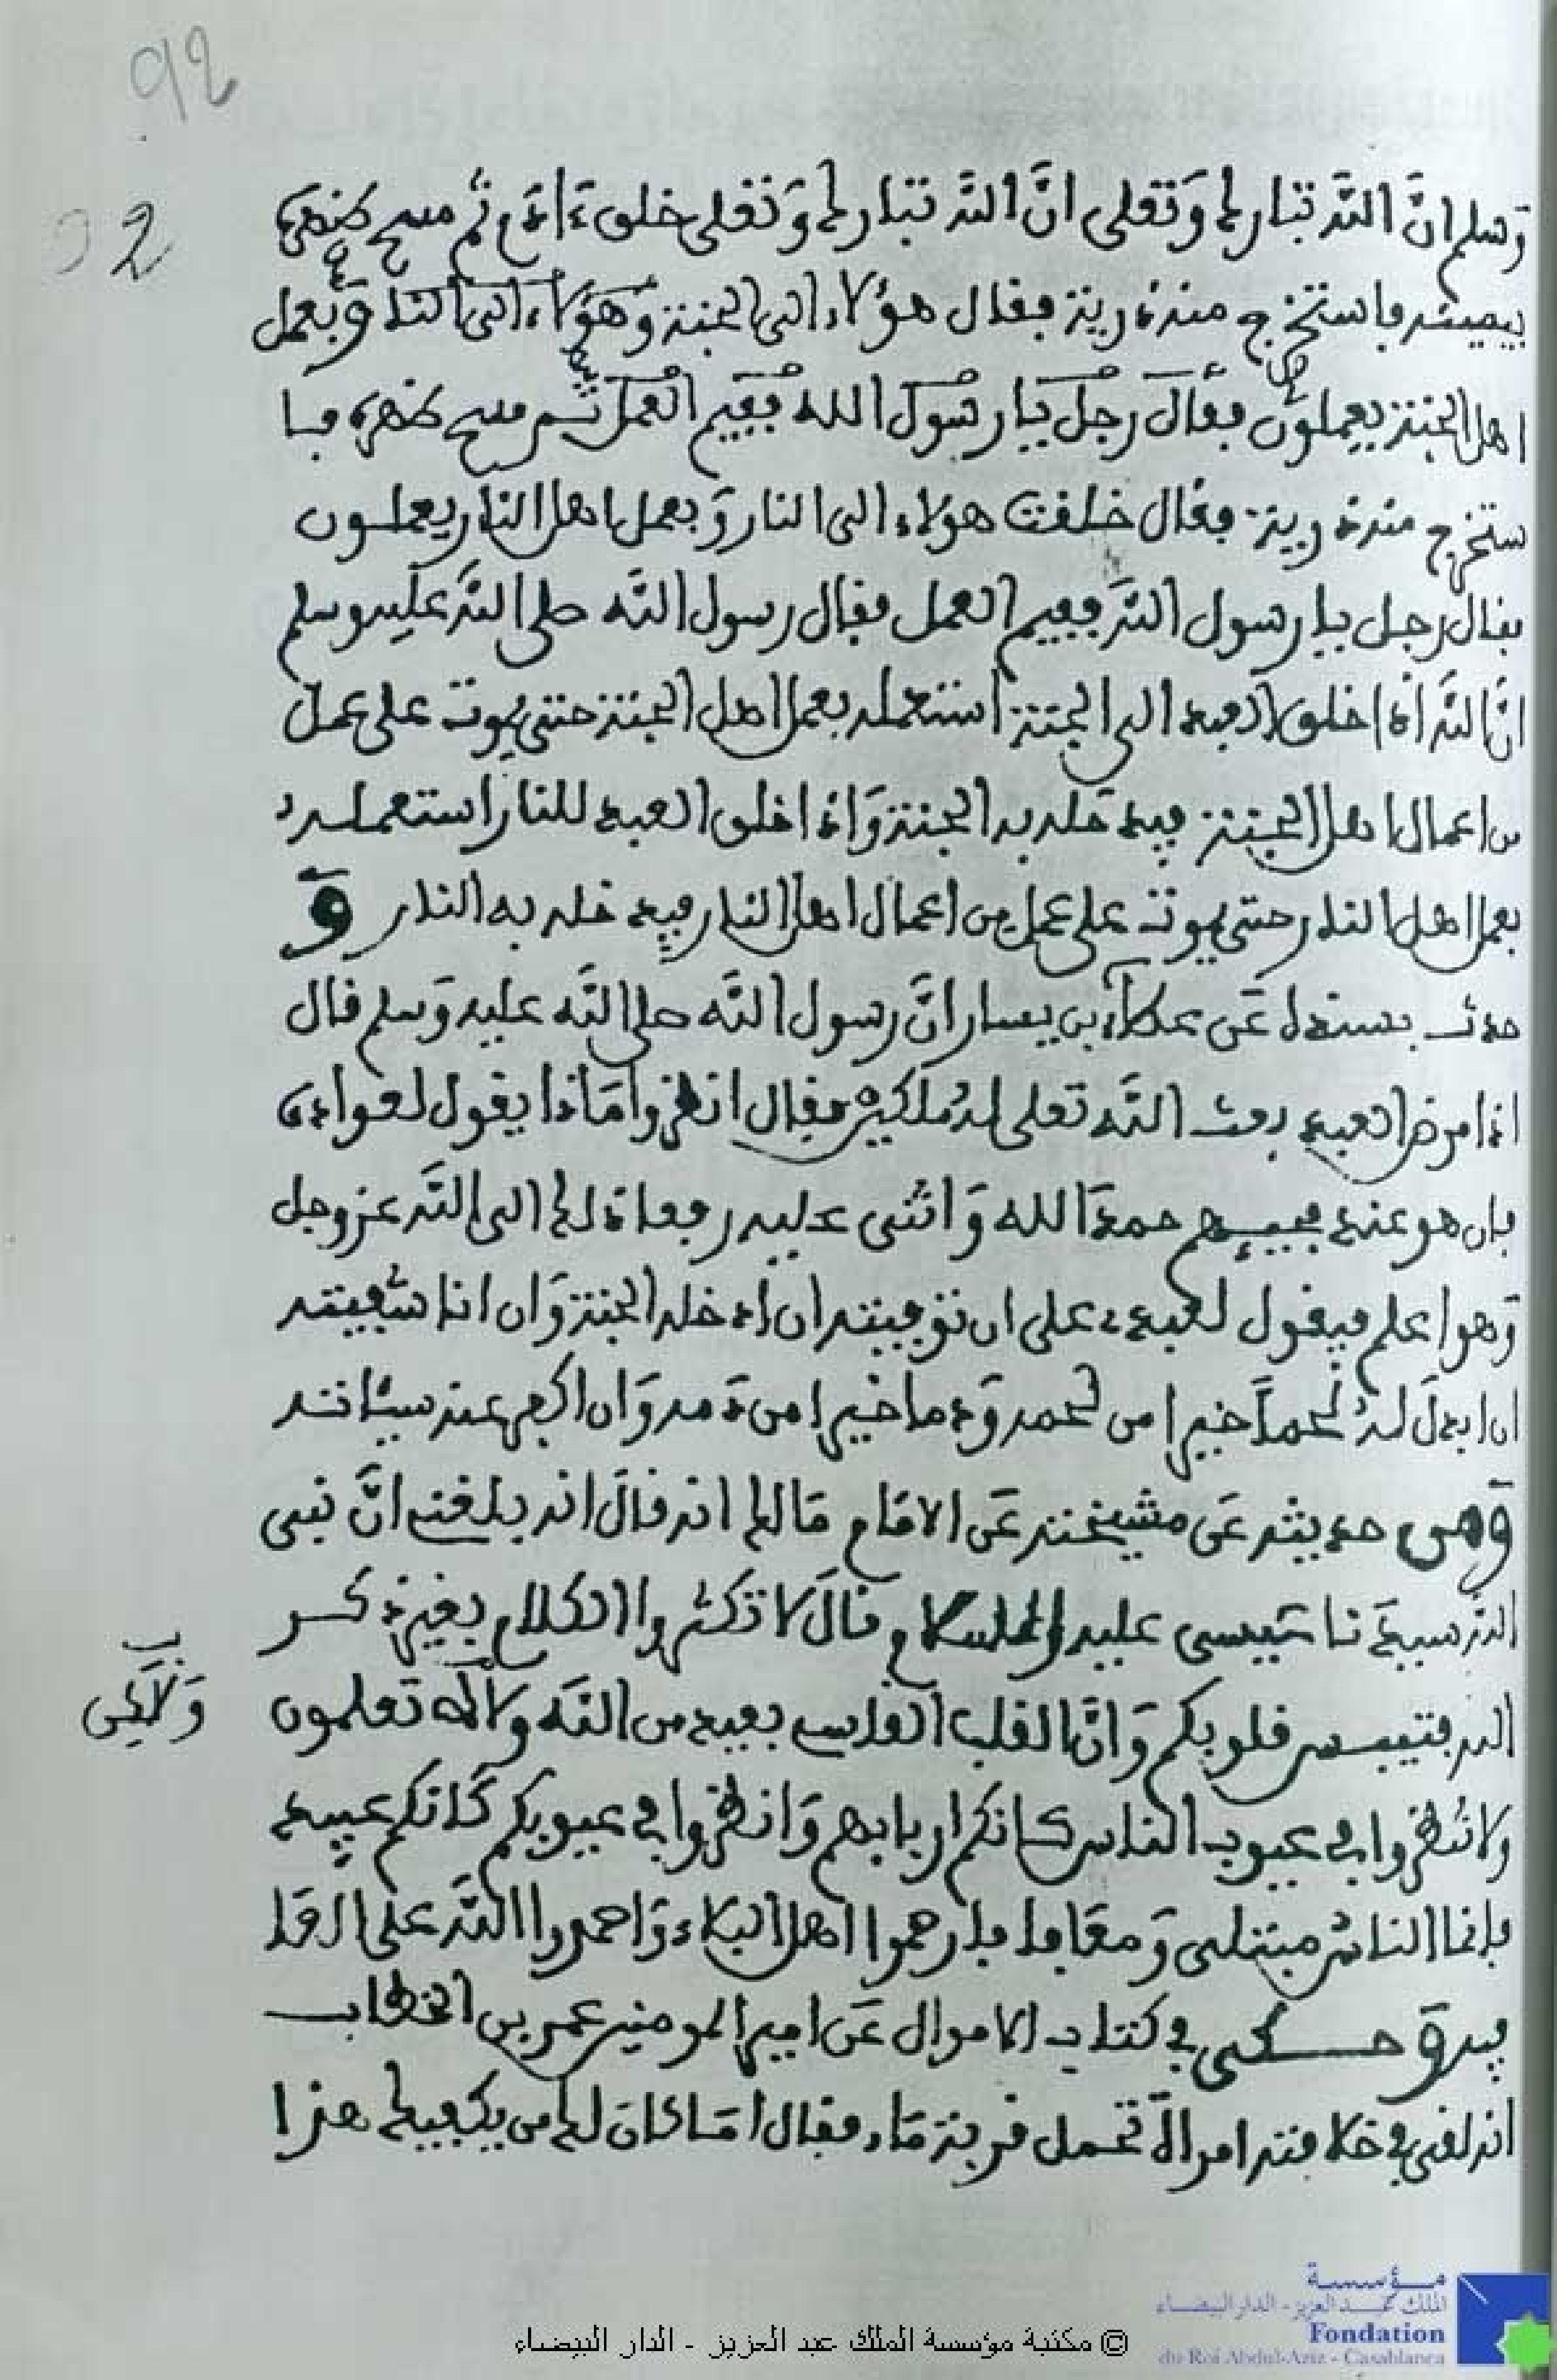 92
2
وسلم انَّ اللَّه تبارك وَتعلى انَّ اللَّه تبارك وَتعلى خلق ءَادَم ثم مسح ظهره
بيمينه فاستخرج منه ذرية فقال هؤلاء الى الجنة وَهؤلاء الى النار وَبعمل
اهل الجنة يعملون فقال رجل يا رسول الله ففيم العمل ثم مسح ظهره فا
ستخرج منه ذرية فقال خلقت هؤلاء الى النار وَبعمل اهل النار يعملون
فقال رجل يا رسول اللَّه ففيم العمل فقال رسول اللَّه صلى اللَّه عليه وسلم
انَّ اللَّه اذا خلق العبد الى الجنة استعمله بعمل اهل الجنة حتى يموت على عمل
من اعمال اهل الجنة فيدخله به الجنة وَاذا خلق العبد للنار استعمله
بعمل اهل النار حتى يموت على عمل من اعمال اهل النار فيدخله به النار وَ
حدث بسنده عَن عطاء بن يسار انَّ رسول اللَّه صلى اللَّه عليه وَسلم قال
اذا مرض العبد بعث اللَّه تعلى له ملكين فقال انظروا مَاذا يقول لعواده
فان هو عند مجيئهم حمدَ الله وَاثنى عليه رفعا ذلك الى اللَّه عز وجل
وَهو اعلم فيقول لعبدي على ان توفيته ان ادخله الجنة وَان انا شفيته
ان ابدل له لحماً خيرا من لحمه وَدما خيرا من دَمه وَان اكفر عنه سيئاته
وَمن حديثه عَن مشيخته عَن الامَام مَالك انه قالَ انه بلغه انَّ نبى
اللَّه سيدَنا عيسى عليه السلام قالَ لا تكثروا الكلام بغير ذكر
اللَّه فتقسى قلوبكم وَانَّ القلب القاسي بعيد من اللَّه ولاكن تعلمون
وَلاكن
ولا تنظروا في عيوب الناس كانكم ارباب وَانظروا في عيوبكم كَانكم عبيد
فإنما الناس مبتلى وَمعَافا فارحموا اهل البلاء وَاحمدوا اللَّه على العَا
فية وَ حكى في كتاب الاموال عَن امير المومنين عمر بن الخطاب
انه لقى في خلافته امرأة تحمل قربة مَاء فقال امَا كانَ لك من يكفيك هذا
مؤسسة
الملك عبد العزيز - الدار البيضاء
Fondation
du Roi Abdul-Aziz - Casablanca
© مكتبة مؤسسة الملك عبد العزيز - الدار البيضاء